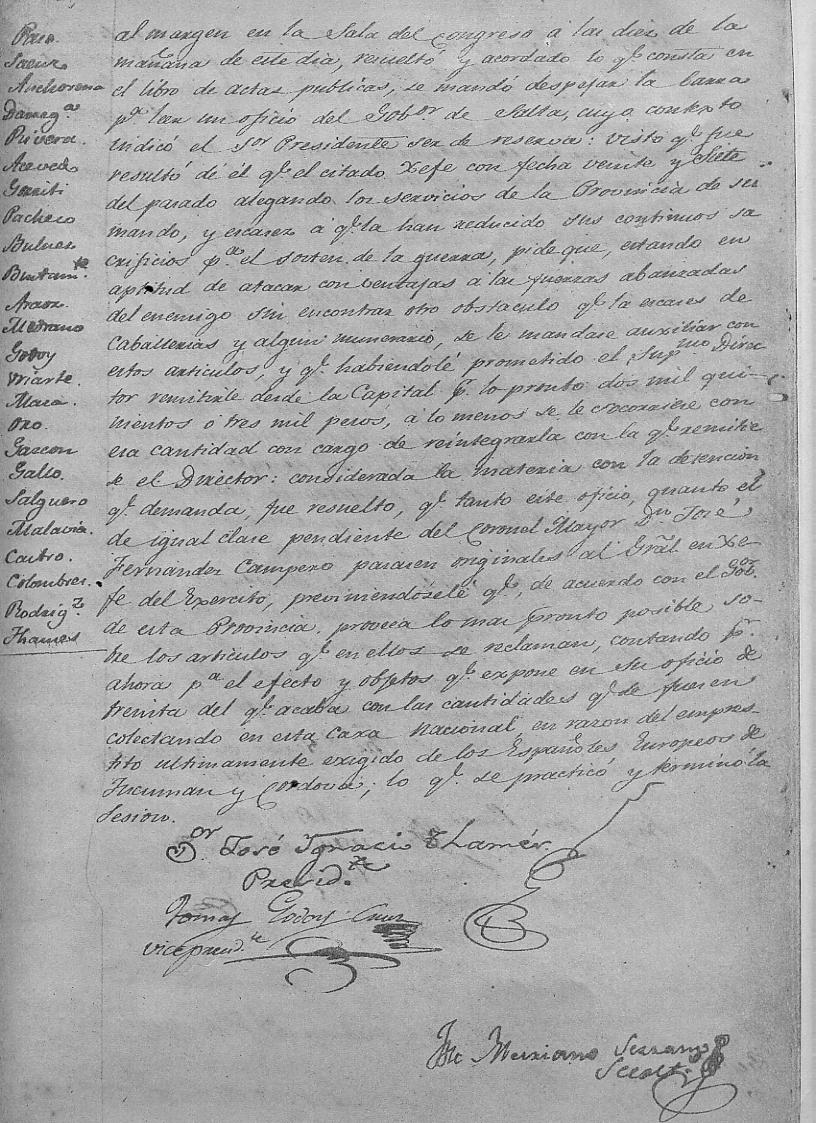 Paso.
Saenz
Anchorena
Darreg.ª
Rivera.
Acevedo
Gorriti
Pacheco
Bulnes
Bustam.te
Araoz.
Medrano
Godoy
Uriarte.
Maza.
Oro.
Gascon
Gallo.
Salguero
Malavia.
Castro.
Colombres.
Rodrig.z
Thames
al margen en la Sala del Congreso á las diez de la
mañana de este dia, resueltó y acordado lo q.e consta en
el libro de actas publicas, se mandó despejar la barra
p.ª leer un oficio del Gob.or de Salta, cuyo contexto
indicó el S.or Presidente ser de reserva: visto q.e fue
resultó dé él q.e el citado Xefe con fecha veinte y siete
del pasado alegando los servicios de la Provincia de su
mando, y escasez á q.e la han reducido sus continuos sa
crificios p.ª el sosten de la guerra, pide que, estando en
aptitud de atacar con ventajas a las fuerzas abanzadas
del enemigo sin encontrar otro obstaculo q.e la escases de
caballerias y algun numerario, se le mandase auxiliar con
estos articulos, y q.e habiendolé prometido el Sup.mo Direc
tor remitirle desde la Capital p.r lo pronto dos mil qui-
nientos ó tres mil pesos, á lo menos se le socorriese con
esa cantidad con cargo de reintegrarla con la q.e remitie
se el Director: considerada la materia con la detencion
q.e demanda, fue resuelto, q.e tanto este oficio, quanto el
de igual clase pendiente del Coronel Mayor D.n José
Fernandez Campero pasasen originales al Grâl en Xe-
fe del Exercito, previniendósele q.e, de acuerdo con el Gob.or
de esta Provincia. provea lo mas pronto posible so-
bre los articulos q.e en ellos se reclaman, contando p.r
ahora p.ª el efecto y objetos q.e expone en su oficio de
treinta del q.e acaba con las cantidades q.e se fuesen
colectando en esta Caxa Nacional en razon del empres-
tito ultimamente exigido de los Españoles Europeos de
Tucuman y Cordova; lo q.e se practicó y terminó la
sesion.
D.or José Ignacio Thamés.
Presid.te
Tomas Godoy Cruz
vicepresid.te
José Mariano Serrano
Secret.º